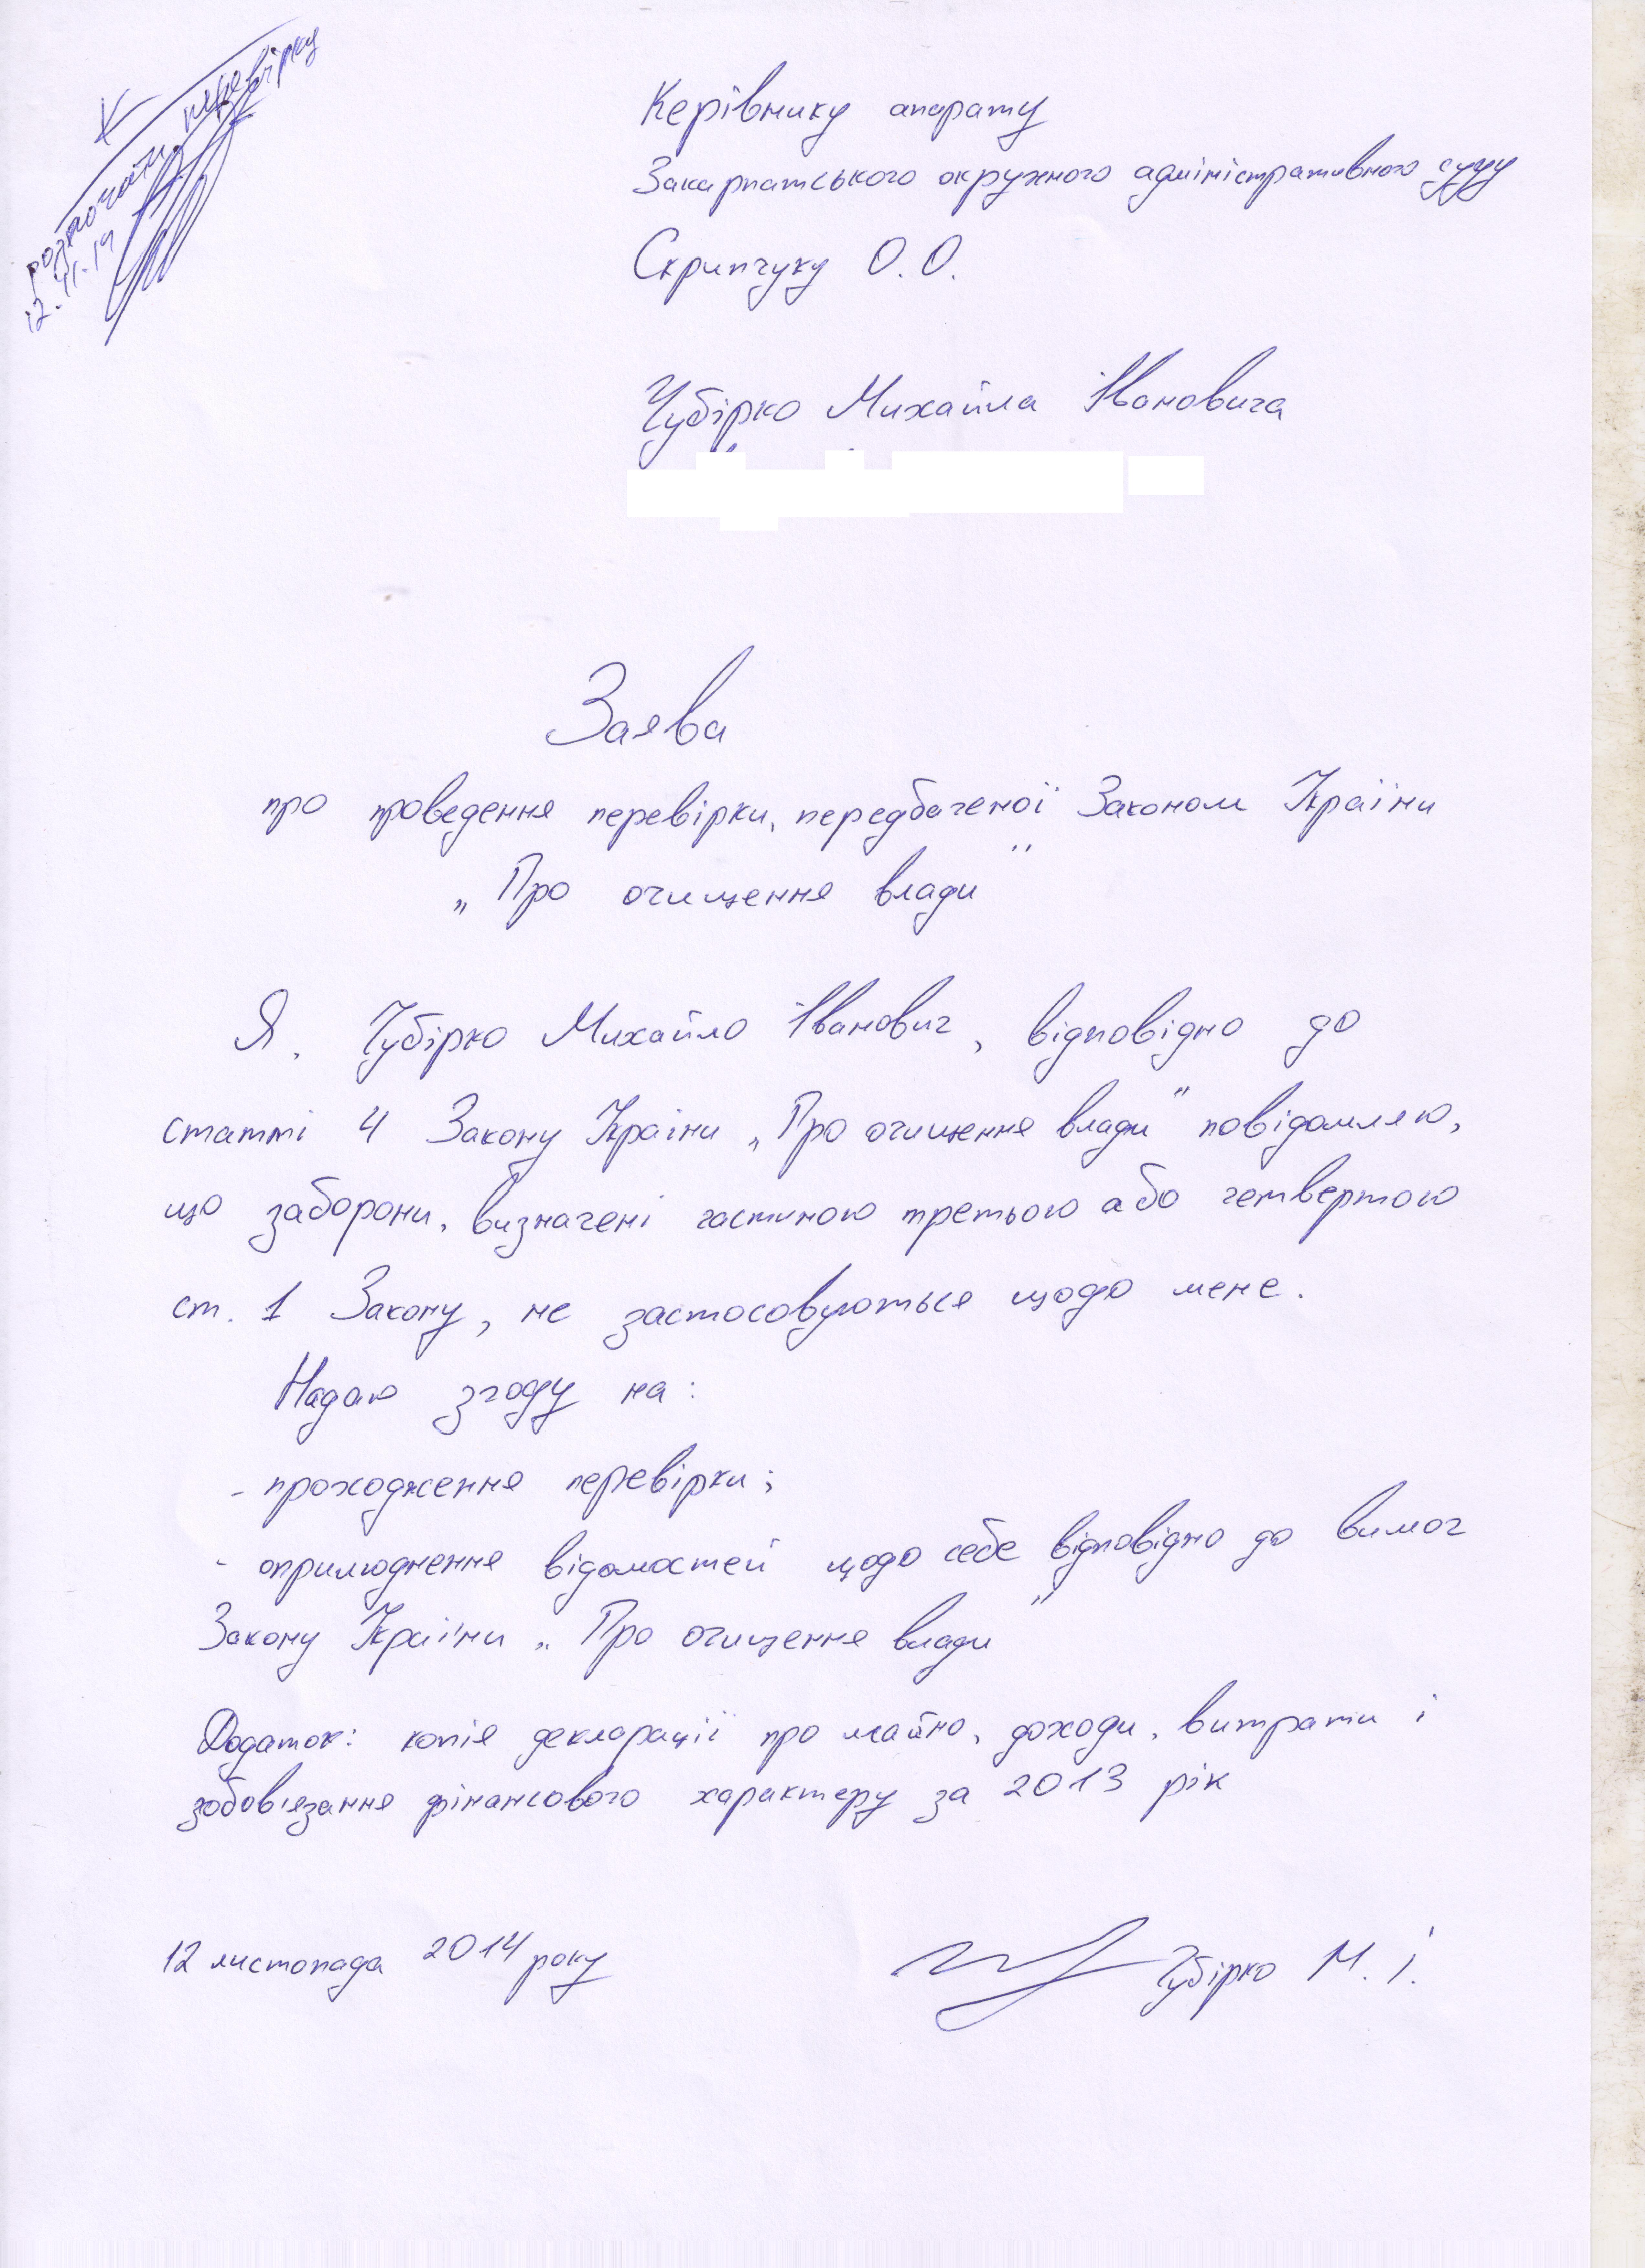 розпочати перевірку
12.11.14
Керівнику апарату
Закарпатського окружного адміністративного суду
Скрипчуку О.О.
Чубірко Михайла Івановича
Заява
про проведення перевірки, передбаченої Законом України
„Про очищення влади"
Я, Чубірко Михайло Іванович, відповідно до
статті 4 Закону України „Про очищення влади" повідомляю,
що заборони, визначені частиною третьою або четвертою
ст. 1 Закону, не застосовуються щодо мене.
Надаю згоду на:
- проходження перевірки;
- оприлюднення відомостей щодо себе відповідно до вимог
Закону України „Про очищення влади"
Додаток: копія декларації про майно, доходи, витрати і
зобов'язання фінансового характеру за 2013 рік
12 листопада 2014 року
Чубірко М.І.